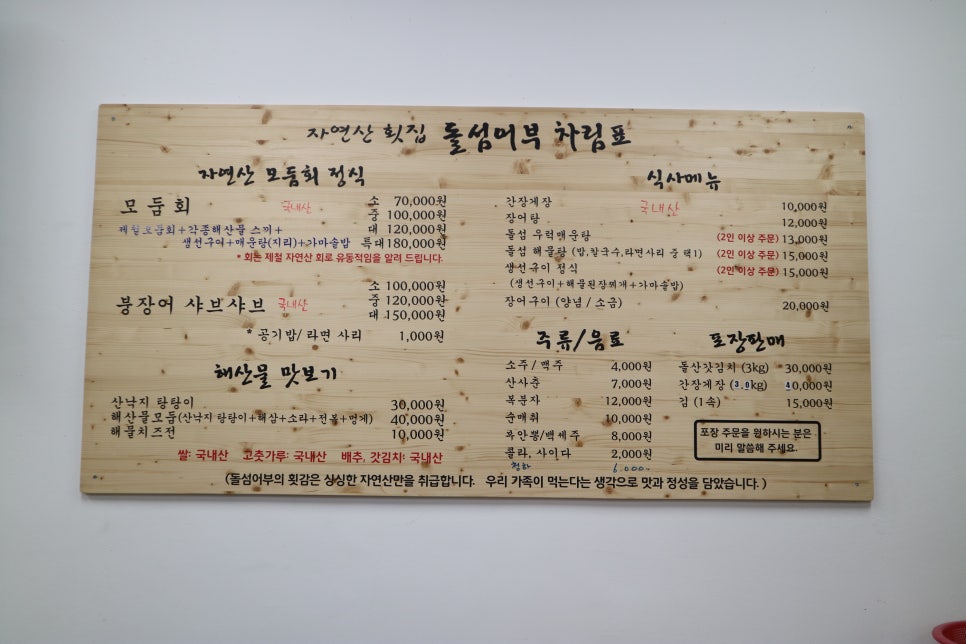 자연산 횟집 돌섬어부 차림표
자연산 모둠회 정식
모둠회 국내산 소 70,000원
중 100,000원
대 120,000원
특대 180,000원
제철모둠회+각종해산물 스끼+
생선구이+매운탕(지리)+가마솥밥
* 회는 제철 자연산 회로 유동적임을 알려 드립니다.
붕장어 샤브샤브 국내산 소 100,000원
중 120,000원
대 150,000원
* 공기밥/라면 사리 1,000원
해산물 맛보기
산낙지 탕탕이 30,000원
해산물모둠(산낙지 탕탕이+해삼+소라+전복+멍게) 40,000원
해물치즈전 10,000원
쌀: 국내산 고춧가루: 국내산 배추, 갓김치: 국내산
식사메뉴
간장게장 국내산 10,000원
장어탕 12,000원
돌섬 우럭매운탕 (2인 이상 주문) 13,000원
돌섬 해물탕 (밥,칼국수,라면사리 중 택1) (2인 이상 주문) 15,000원
생선구이 정식 (2인 이상 주문) 15,000원
(생선구이+해물된장찌개+가마솥밥)
장어구이 (양념/소금) 20,000원
주류/음료
소주/맥주 4,000원
산사춘 7,000원
복분자 12,000원
순매취 10,000원
좌안뽕/백세주 8,000원
콜라, 사이다 2,000원
청하 6.000-
포장판매
돌산갓김치 (3kg) 30,000원
간장게장 (3.0kg) 40,000원
김 (1속) 15,000원
포장 주문을 원하시는 분은
미리 말씀해 주세요.
(돌섬어부의 횟감은 싱싱한 자연산만을 취급합니다. 우리 가족이 먹는다는 생각으로 맛과 정성을 담았습니다.)